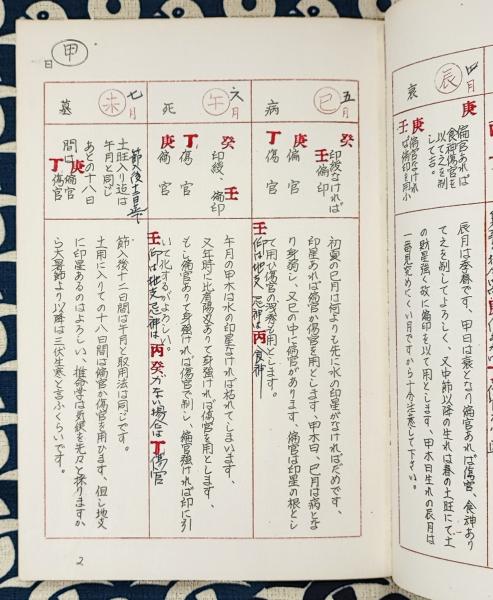 衰
辰
四月
庚
偏官あれば
食神傷官を
以て之を剋
して吉。
庚
偏官なければ
壬
偏印を用ふ
辰月は季春です、甲日は衰となり偏官あれば傷官、食神あり
て之を剋してよろしく、又中節以降の生れは春の土旺にて土
の助星強く故に偏印を以て用とします、甲木日生れの辰月は
一番見究めにくい月ですから十分注意して下さい。
甲
日
五月
巳
病
癸
印綬なければ
壬
偏印
庚
偏官
丁
傷官
初夏の巳月は何よりも先に水の印星がなければだめです、
印星あれば偏官か傷官を用とします、甲木日、巳月は病とな
り身弱し、又巳の中に偏官があります、偏官は印星の根とし
て用ひ傷官の洩秀も用とします。
六月
午
死
癸
印綬、偏印
壬
丁
傷官
庚
偏官
午月の甲木は水の印星なければ枯れてしまいます、
又年時に比肩陽刃ありて身強ければ傷官を用とします、
もし偏官ありて身強ければ傷官で制し、偏官強ければ印に引
いて化するがよろしい。
丙癸がない場合は丁傷官
七月
未
墓
節入後十二日半
土旺入り迄は
午月と同じ
あとの十八日
間は
庚
偏官
丁
傷官
節入後十二日間は午月と取用法は同じです。
土用に入りての十八日間は偏官か傷官を用ひます、但し地支
に印星あるのはよろしい、推命学は気候を元々と採りますか
ら大暑節より以降は三伏生寒と言ふくらいです。
2